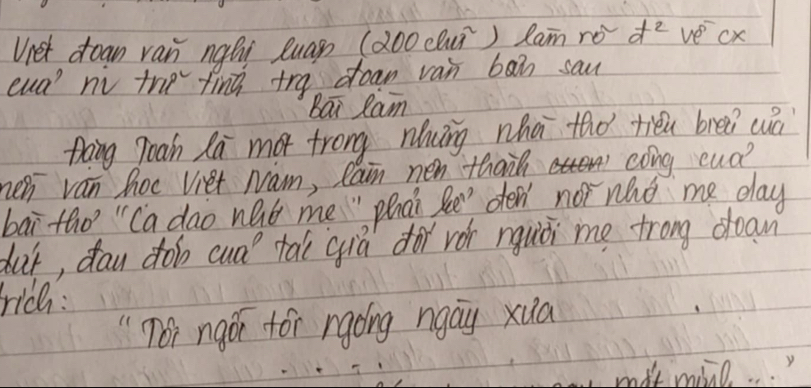 Viết đoạn văn nghị luận (200 chữ) làm rõ đ² về cx
của nv trữ tình trg đoạn văn bản sau
Bài làm
Đặng Toán là một trong những nhà thơ tiêu biểu của
nền văn học Việt Nam, làm nên thành công của
bài thơ "Ca dao nhớ mẹ" phải kể đến nỗi nhớ mẹ day
dứt, đau đớn của tác giả đối với người mẹ trong đoạn
trích:
"Tôi ngồi tôi ngóng ngày xưa
một mình..."